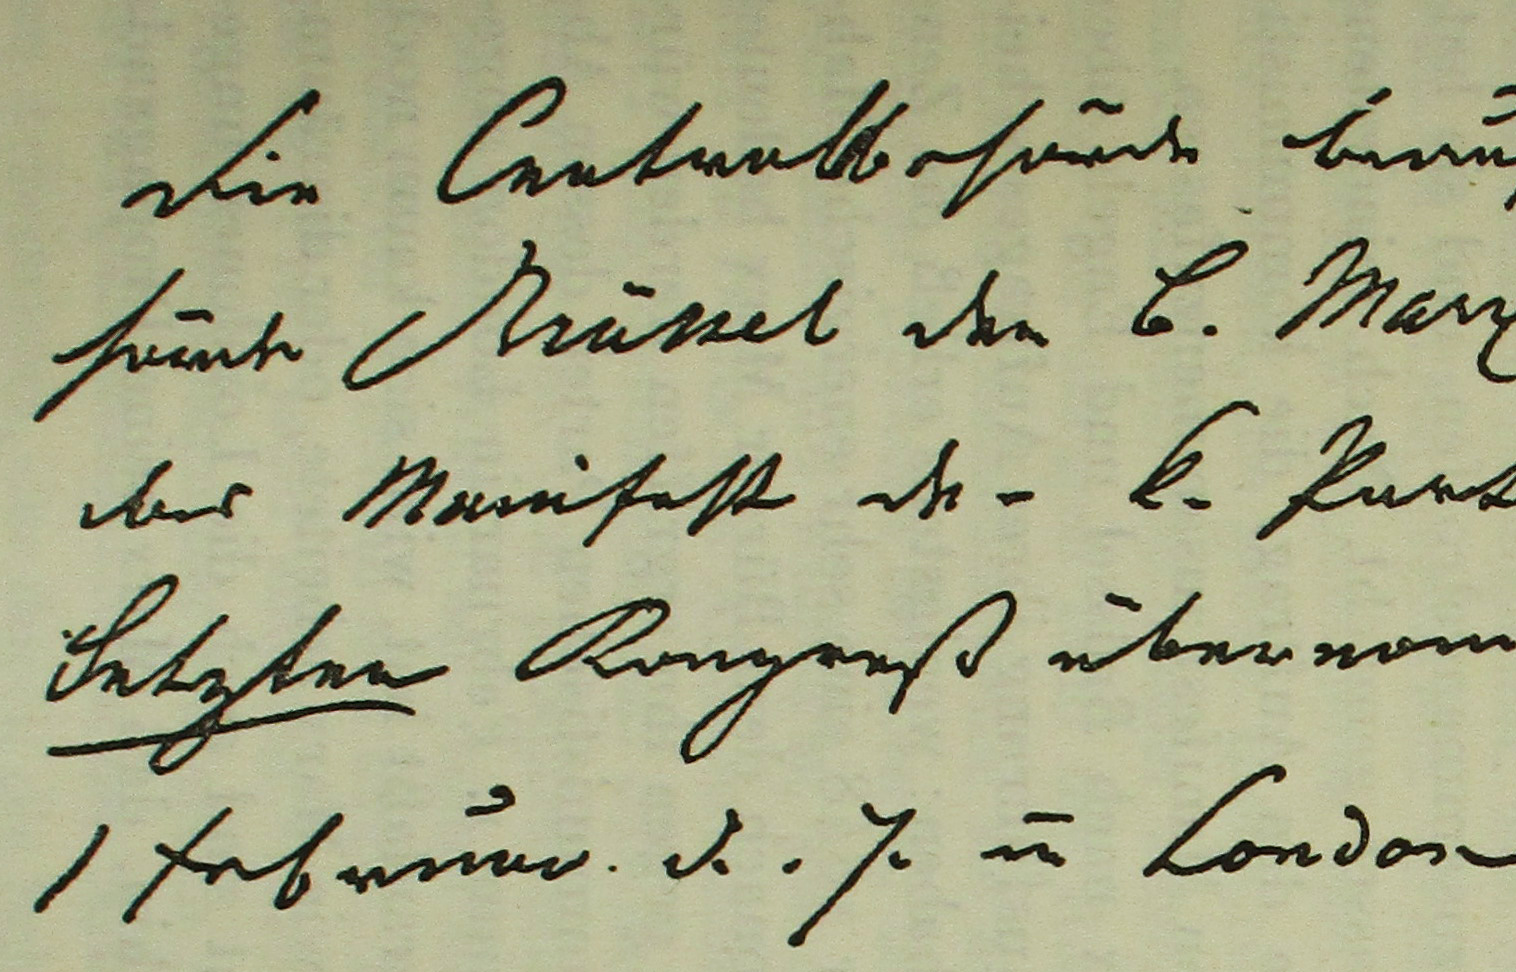 Die Centralbehörde beau
hörde Brüssel dem C. Marx
das Manifest der K. Part
letzten Kongreß übernom
1 Februar d. J. in London